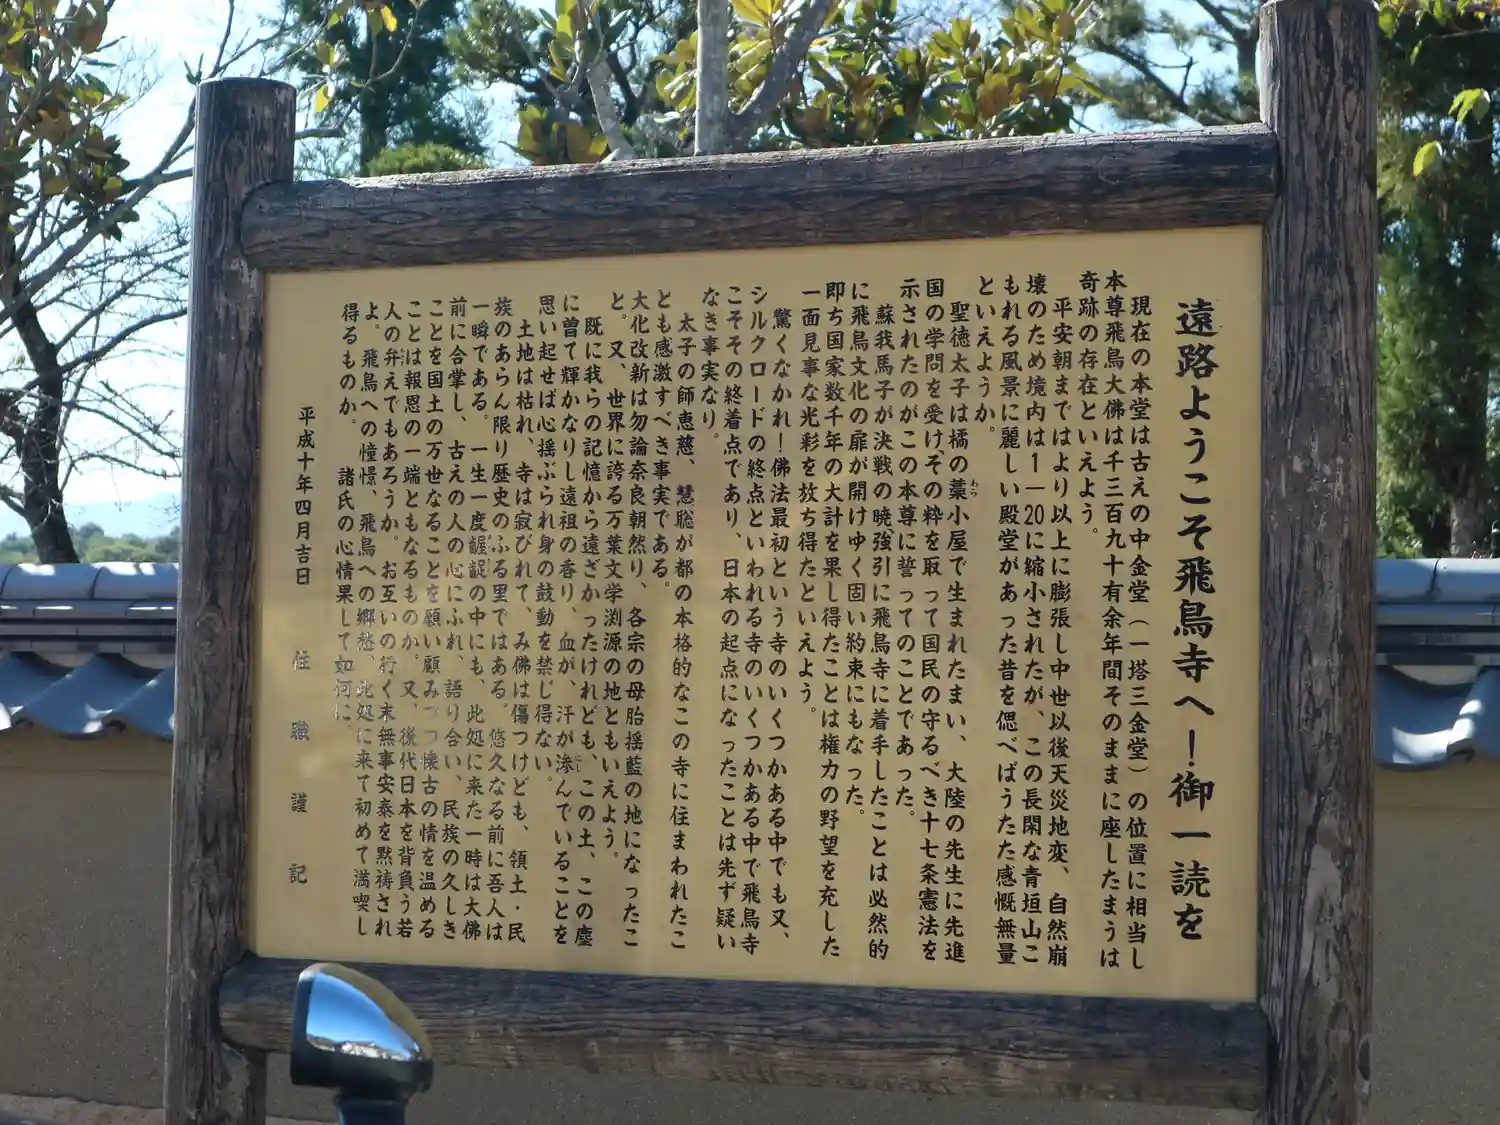 遠路ようこそ飛鳥寺へ！御一読を
現在の本堂は古えの中金堂（一塔三金堂）の位置に相当し
本尊飛鳥大佛は千三百九十有余年間そのままに座したまうは
奇跡の存在といえよう。
平安朝まではより以上に膨張し中世以後天災地変、自然崩
壊のため境内は1—20に縮小されたが、この長閑な青垣山こ
もれる風景に麗しい殿堂があった昔を偲べばうたた感慨無量
といえようか。
聖徳太子は橘の藁小屋で生まれたまい、大陸の先生に先進
わら
国の学問を受け、その粋を取って国民の守るべき十七条憲法を
示されたのがこの本尊に誓ってのことであった。
蘇我馬子が決戦の暁強引に飛鳥寺に着手したことは必然的
に飛鳥文化の扉が開けゆく固い約束にもなった。
即ち国家数千年の大計を果し得たことは権力の野望を充した
一面見事な光彩を放ち得たといえよう。
驚くなかれ！佛法最初という寺のいくつかある中でも又、
シルクロードの終点といわれる寺のいくつかある中で飛鳥寺
こそその終着点であり、日本の起点になったことは先ず疑い
なき事実なり。
太子の師恵慈、慧聡が都の本格的なこの寺に住まわれたこ
とも感激すべき事実である。
大化改新は勿論奈良朝然り、各宗の母胎揺藍の地になったこ
と。又、世界に誇る万葉文学渕源の地ともいえよう。
既に我らの記憶から遠ざかったけれども、この土、この塵
に曽て輝かなりし遠祖の香り、血が、汗が滲んでいることを
思い起せば心揺ぶられ身の鼓動を禁じ得ない。
土地は枯れ、寺は寂びれて、み佛は傷つけども、領土・民
族のあらん限り歴史のふる里ではある。悠久なる前に吾人は
一瞬である。一生一度齷齪の中にも、此処に来た一時は大佛
前に合掌し、古えの人の心にふれ、語り合い、民族の久しき
ことを国土の万世なることを願い顧みつつ懐古の情を温める
ことは報恩の一端ともなるものか。又、後代日本を背負う若
人の弁えでもあろうか。お互いの行く末無事安泰を黙祷され
よ。飛鳥への憧憬、飛鳥への郷愁、此処に来て初めて満喫し
得るものか。　諸氏の心情果して如何に。
平成十年四月吉日　住職謹記